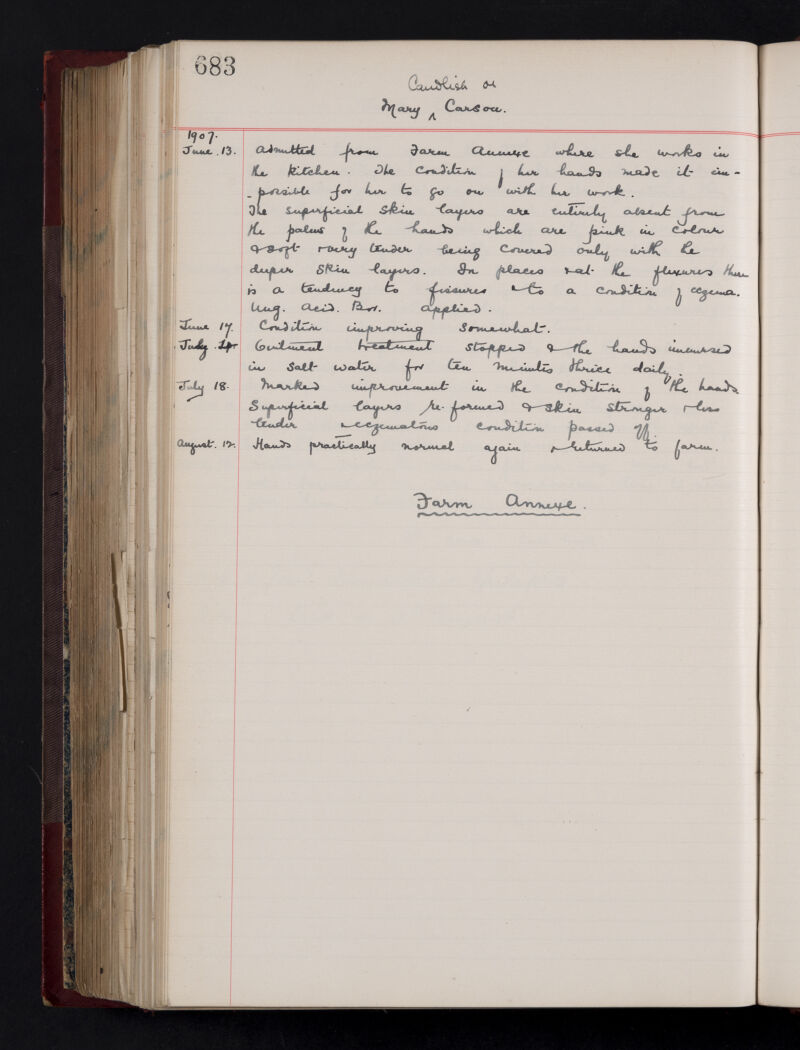 683
Candlish or
Mary ^ Carson.
1907.
June. 13. Admitted from Farm Annexe where she works in
the kitchen. The condition of her hands made it im-
-possible for her to go on with her work.
The superficial skin layers are entirely absent from
the palms of the hands which are pink in colour
& soft & very tender being covered only with the
deeper skin layers. In places & at the flexures there
is a tendency to fissures & to a condition of eczema.
Ung. Acid. Bor. applied.
June 17. Condition improving somewhat.
July 4. Ointment treatment stopped & the hands immersed
in salt water for ten minutes thrice daily.
July 18. Marked improvement in the condition of the hands
Superficial layers re-formed & skin stronger & less
tender & eczematous condition passed off.
August. 12. Hands practically normal again & returned to farm.
Farm Annexe.